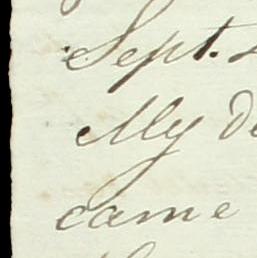 Sept.
My
came